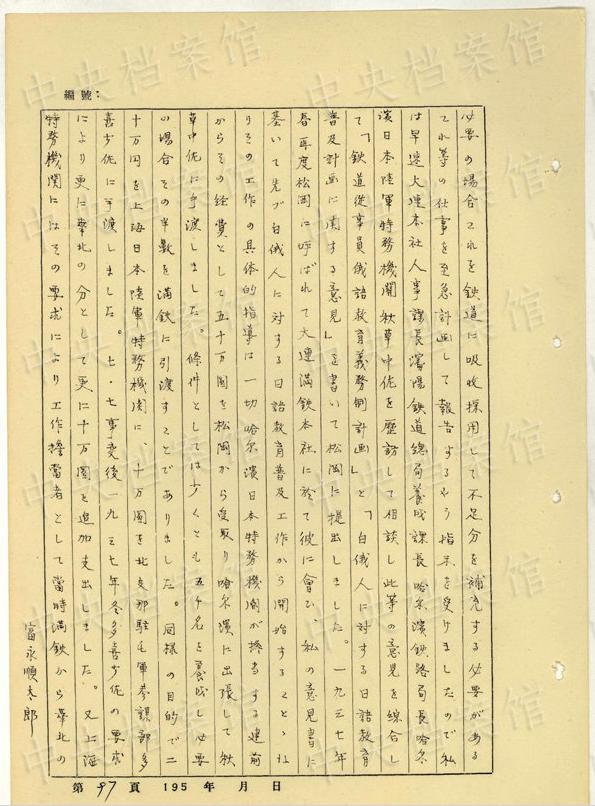 編號：
必要の場合これを鉄道に吸收採用して不足分を補充する必要がある
これ等の仕事を至急計画して報告するやう指示を受けましたので私
は早速大連本社人事課長瀋陽鉄道總局養成課長哈尔濱鉄路局長哈尔
濱日本陸軍特務機関秋草中佐を歴訪して相談し此等の意見を綜合し
て「鉄道従事員俄語教育義務制計画」と「白俄人に対する日語教育
普及計画に関する意見」を書いて松岡に提出しました。一九三七年
春再度松岡に呼ばれて大連満鉄本社に於て彼に會ひ、私の意見書に
基いて先づ白俄人に対する日語教育普及工作から開始することゝな
りその工作の具体的指導は一切哈尔濱日本特務機関が擔当する建前
からその経費として五十万圓を松岡から受取り哈尔濱に出張して秋
草中佐に手渡しました。條件としては少くとも五千名を養成し必要
の場合その半数を満鉄に引渡すことでありました。同様の目的で二
十万円を上海日本陸軍特務機関に、十万圓を北支那駐屯軍参謀部多
喜少佐に手渡しました。七・七事変後一九三七年冬多喜少佐の要求
により更に華北の分として更に十万圓を追加支出しました。又上海
特務機関にはその要求により工作擔當者として當時満鉄から華北の
富永順太郎
第 97 頁 195 年 月 日
中央档案馆